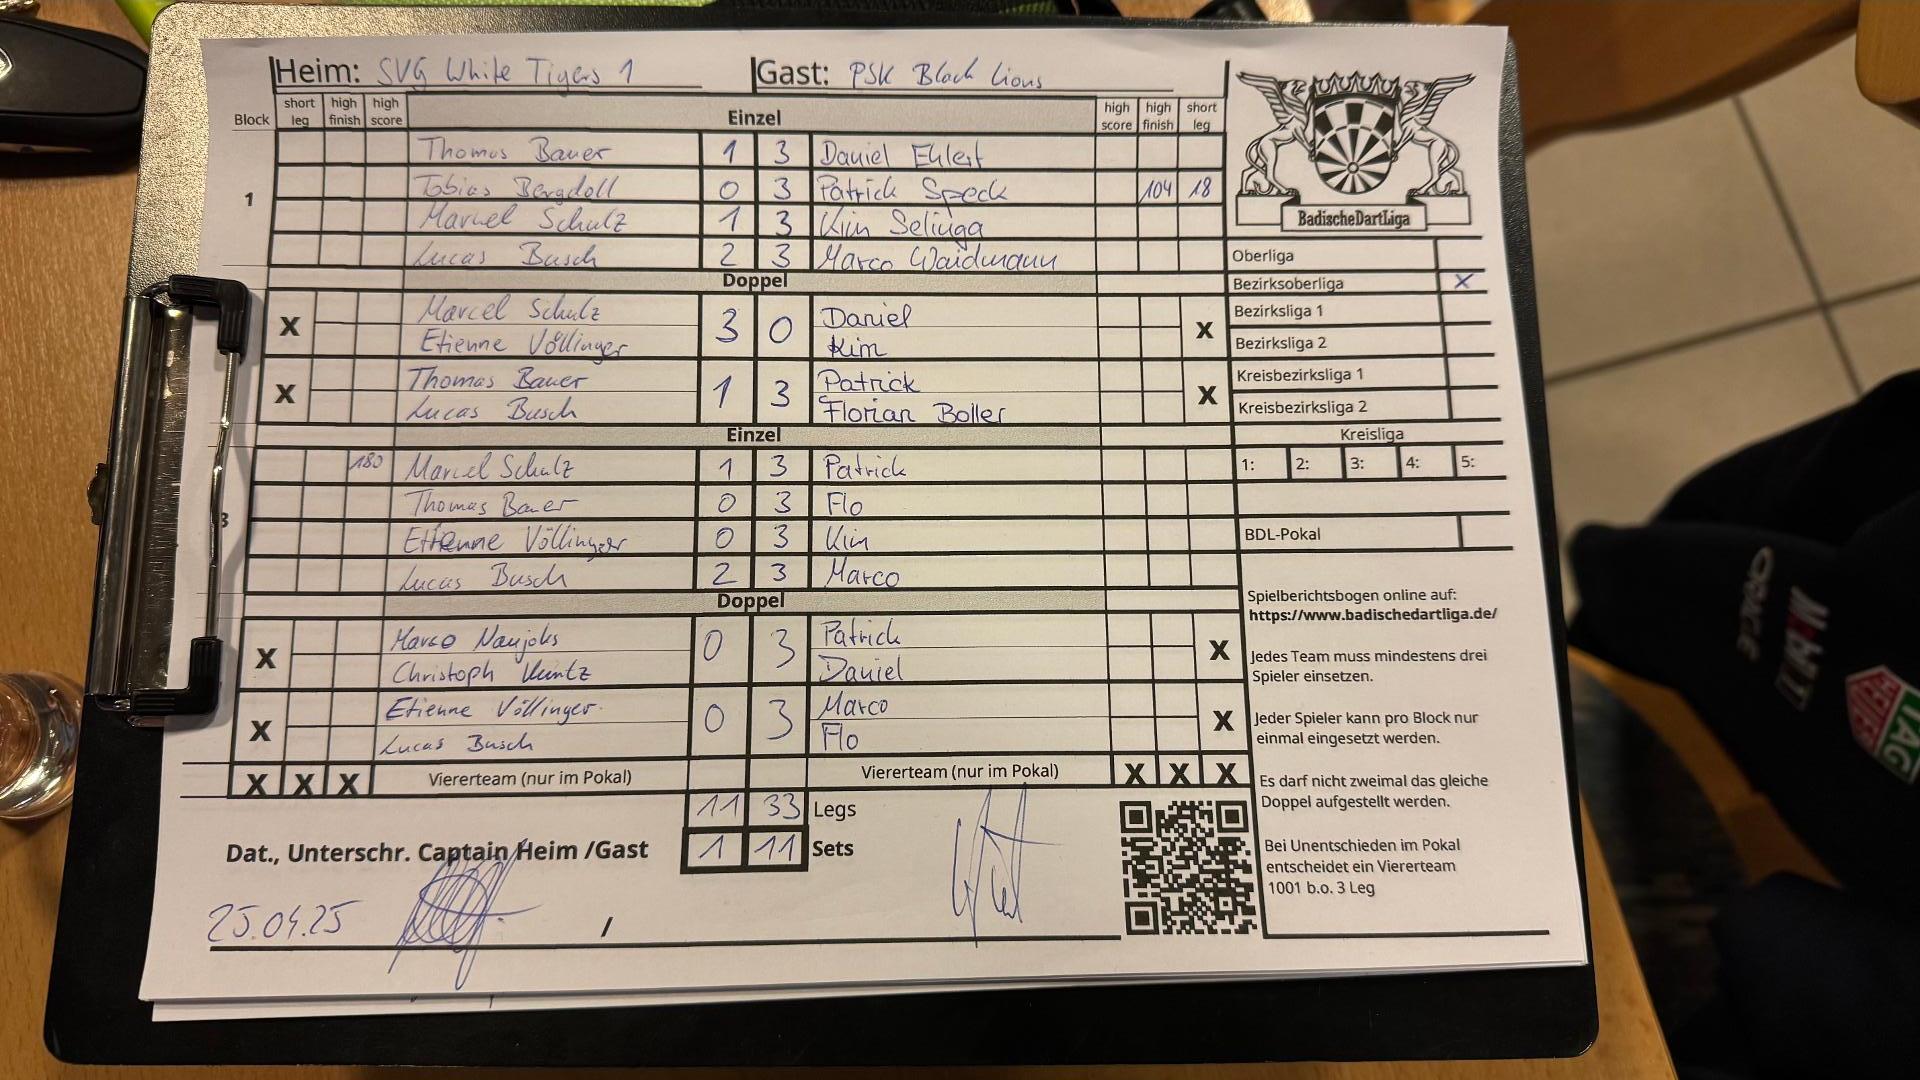 Heim: SVG White Tigers 1 Gast: PSK Black Lions
Block short leg high finish high score Einzel high score high finish short leg
Thomas Bauer 1 3 Daniel Ehlert
1 Tobias Bergdoll 0 3 Patrick Speck 104 18
Marcel Schulz 1 3 Kim Selinga
Lucas Busch 2 3 Marco Waidmann
Doppel
X Marcel Schulz 3 0 Daniel X
Etienne Völlinger Kim
X Thomas Bauer 1 3 Patrick X
Lucas Busch Florian Boller
Einzel
180 Marcel Schulz 1 3 Patrick
Thomas Bauer 0 3 Flo
3 Etienne Völlinger 0 3 Kim
Lucas Busch 2 3 Marco
Doppel
X Marco Naujoks 0 3 Patrick X
Christoph Kuntz Daniel
X Etienne Völlinger 0 3 Marco X
Lucas Busch Flo
X X X Viererteam (nur im Pokal) Viererteam (nur im Pokal) X X X
11 33 Legs
Dat., Unterschr. Captain Heim /Gast 1 11 Sets
25.04.25 /
BadischeDartLiga
Oberliga
Bezirksoberliga X
Bezirksliga 1
Bezirksliga 2
Kreisbezirksliga 1
Kreisbezirksliga 2
Kreisliga
1: 2: 3: 4: 5:
BDL-Pokal
Spielberichtsbogen online auf:
https://www.badischedartliga.de/
Jedes Team muss mindestens drei
Spieler einsetzen.
Jeder Spieler kann pro Block nur
einmal eingesetzt werden.
Es darf nicht zweimal das gleiche
Doppel aufgestellt werden.
Bei Unentschieden im Pokal
entscheidet ein Viererteam
1001 b.o. 3 Leg
ORACLE
TAG
HEUER